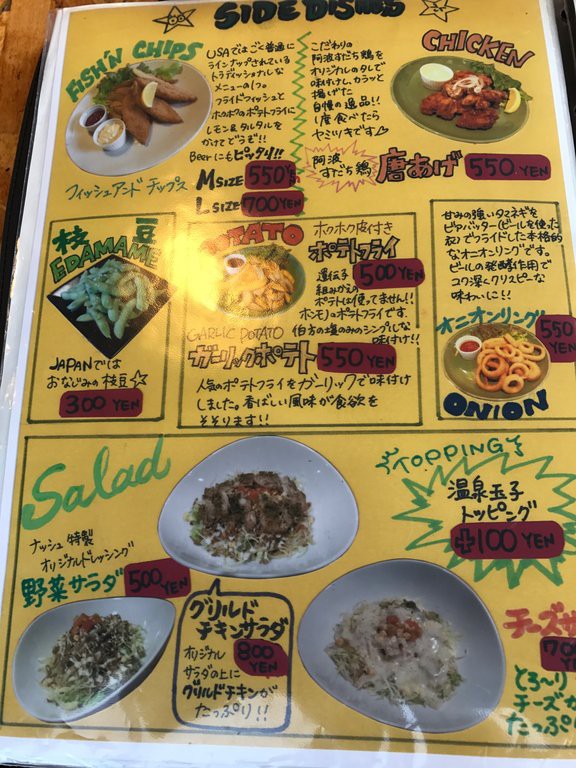 SIDE DISHES
FISH'N CHIPS
USAではごく普通に
ラインナップされている
トラディショナルな
メニューの1つ。
フライドフィッシュと
ホクホクのポテトフライに
レモン&タルタルを
かけてどうぞ!!
Beerにもピッタリ!!
フィッシュアンドチップス
M SIZE 550YEN
L SIZE 700YEN
こだわりの
阿波すだち鶏を
オリジナルのタレで
味付けし、カラッと
揚げた
自慢の逸品!!
1度食べたら
ヤミツキです
CHICKEN
阿波
すだち鶏
唐あげ 550YEN
枝豆
EDAMAME
JAPANでは
おなじみの枝豆☆
300YEN
POTATO
ホクホク皮付き
ポテトフライ
500YEN
遺伝子
組みかえの
ポテトは使ってません!!
ホンモノのポテトフライです。
伯方の塩のみのシンプルな
味付け!!
GARLIC POTATO
ガーリックポテト 550YEN
人気のポテトフライをガーリックで味付け
しました。香ばしい風味が食欲を
そそります!!
甘みの強いタマネギを
ビアバッター(ビールを使った
衣)でフライドした本格的
なオニオンリングです。
ビールの発酵作用で
コク深くクリスピーな
味わいに!!
オニオンリング
550YEN
ONION
Salad
ナッシュ特製
オリジナルドレッシング
野菜サラダ 500YEN
グリルド
チキンサラダ
オリジナル
サラダの上に
グリルドチキンが
たっぷり!!
800YEN
TOPPING
温泉玉子
トッピング
+100YEN
チーズサ
70
YEN
とろ〜り
チーズが
たっぷ